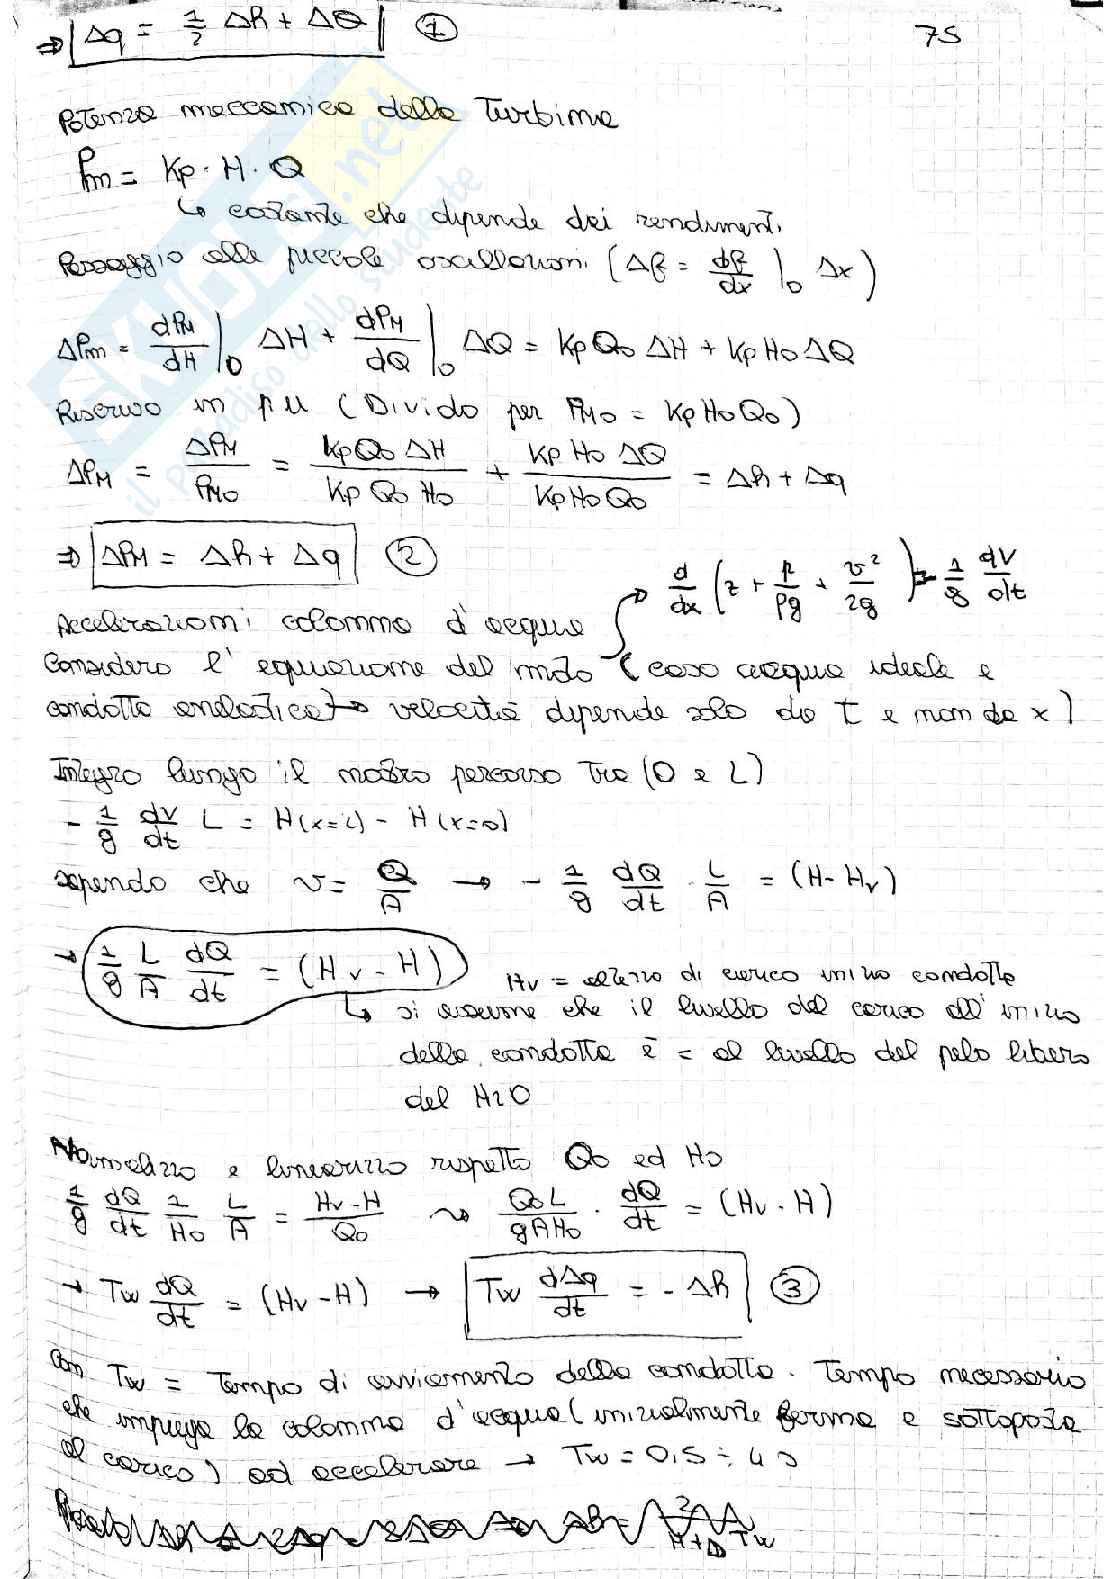 ⇒ Δq = 1/2 Δh + ΔΘ (1) 75
Potenza meccanica della Turbina
Pm = Kp · H · Q
↳ costante che dipende dai rendimenti
Passaggio alle piccole oscillazioni (Δf = df/dx |0 Δx)
ΔPm = dPM/dH |0 ΔH + dPM/dQ |0 ΔQ = Kp Q0 ΔH + Kp H0 ΔQ
Riscrivo in pu (Divido per PM0 = Kp H0 Q0)
ΔPM = ΔPM/PM0 = Kp Q0 ΔH / Kp Q0 H0 + Kp H0 ΔQ / Kp H0 Q0 = Δh + Δq
⇒ ΔPM = Δh + Δq (2)
d/dx (z + p/ρg + v²/2g) = - 1/g dV/dt
Accelerazioni colonna d'acqua
Considero l'equazione del moto (caso acqua ideale e
condotta anelastica → velocità dipende solo da t e non da x)
Integro lungo il nostro percorso tra (0 e L)
- 1/g dv/dt L = H(x=L) - H(x=0)
sapendo che v = Q/A → - 1/g dQ/dt · L/A = (H - Hv)
→ 1/g L/A dQ/dt = (Hv - H)
Hv = altezza di carico inizio condotta
↳ si assume che il livello del carico all'inizio
della condotta è = al livello del pelo libero
del H2O
Normalizzo e linearizzo rispetto Q0 ed H0
1/g dQ/dt 1/H0 L/A = Hv - H / Q0 ⤳ Q0 L / g A H0 · dQ/dt = (Hv - H)
→ Tw dQ/dt = (Hv - H) → Tw dΔq/dt = - Δh (3)
Con Tw = Tempo di avviamento della condotta. Tempo necessario
che impiega la colonna d'acqua (inizialmente ferma e sottoposta
al carico) ad accelerare → Tw = 0,5 ÷ 4 s
SKUOLA.net
il paradiso dello studente